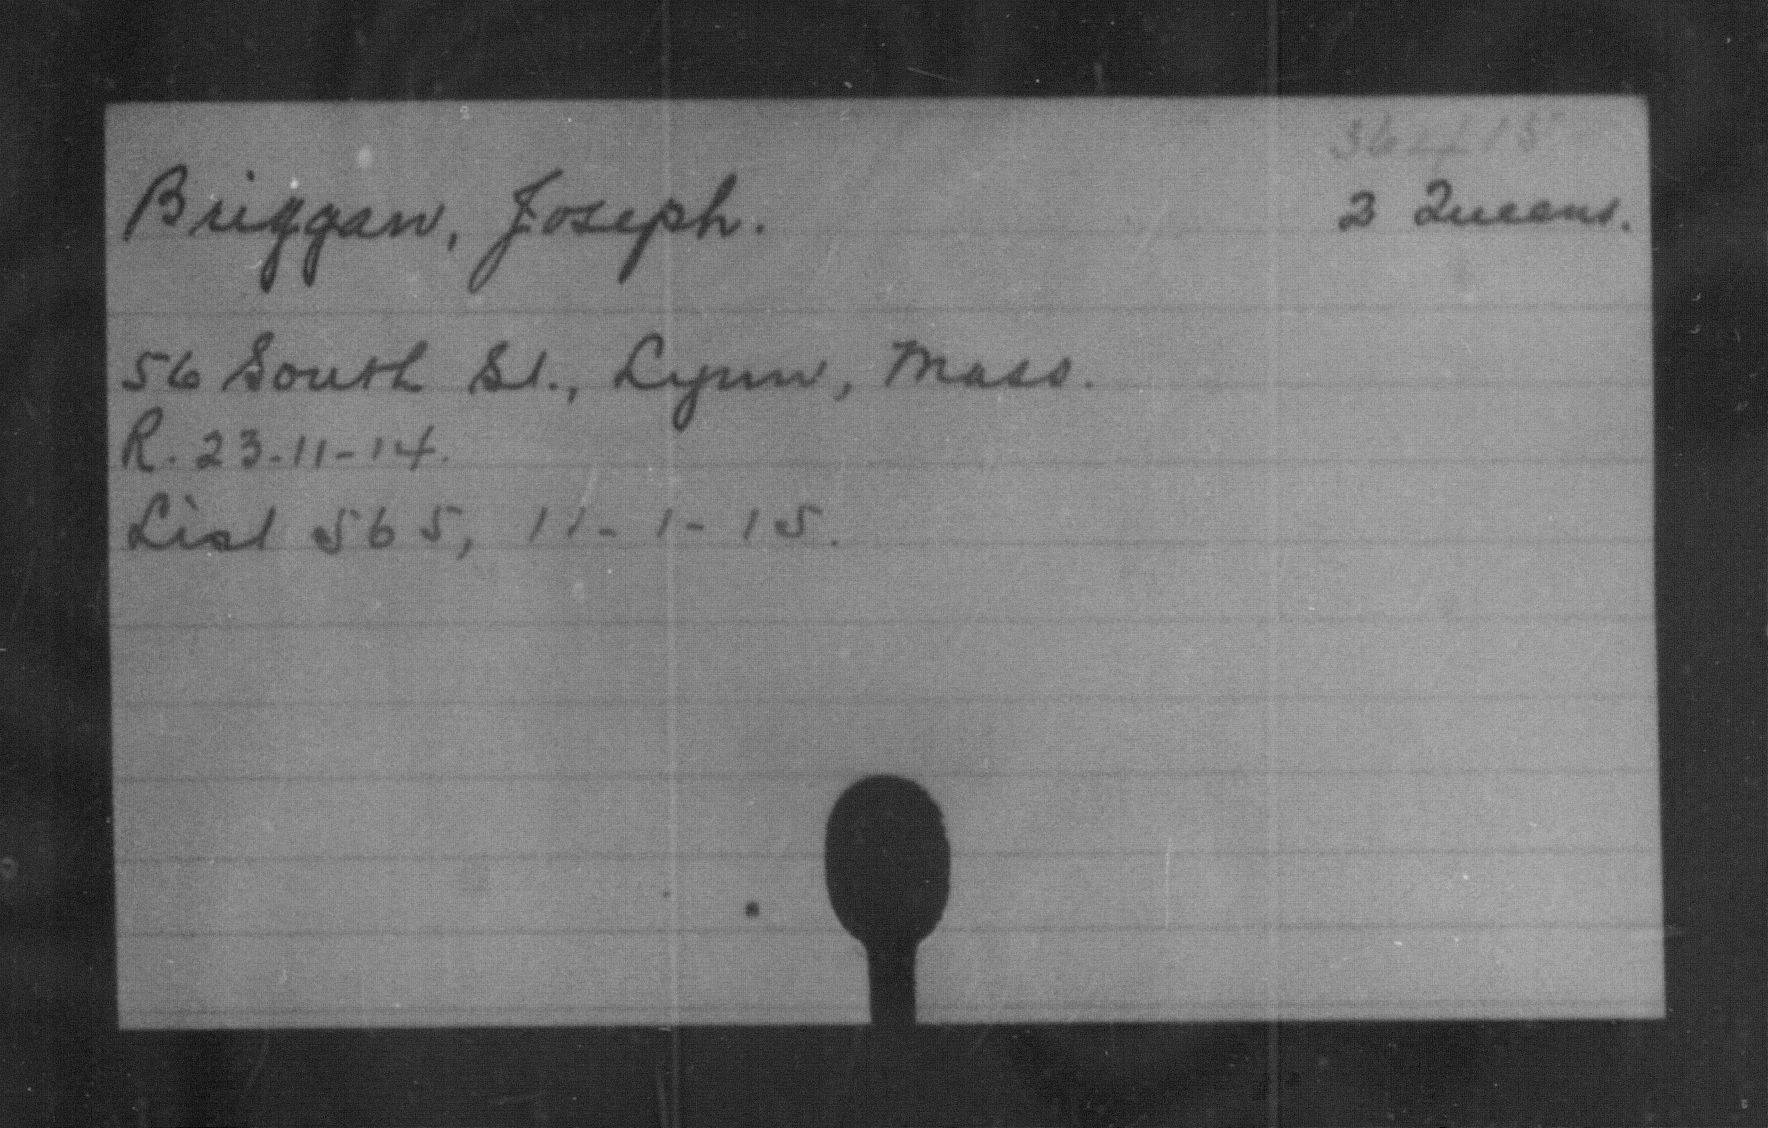 Briggan, Joseph.
2 Queens.
56 South St., Lynn, Mass.
R. 23-11-14.
List 565, 11-1-15.